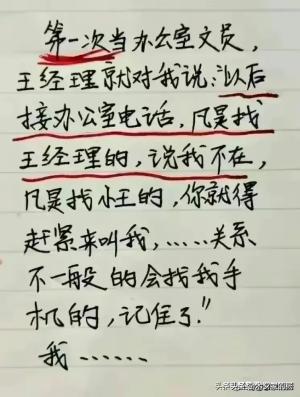 第一次当办公室文员，
王经理就对我说：“以后
接办公室电话，凡是找
王经理的，说我不在，
凡是找小王的，你就得
赶紧来叫我，……关系
不一般的会找我手
机的，记住了.”
我……